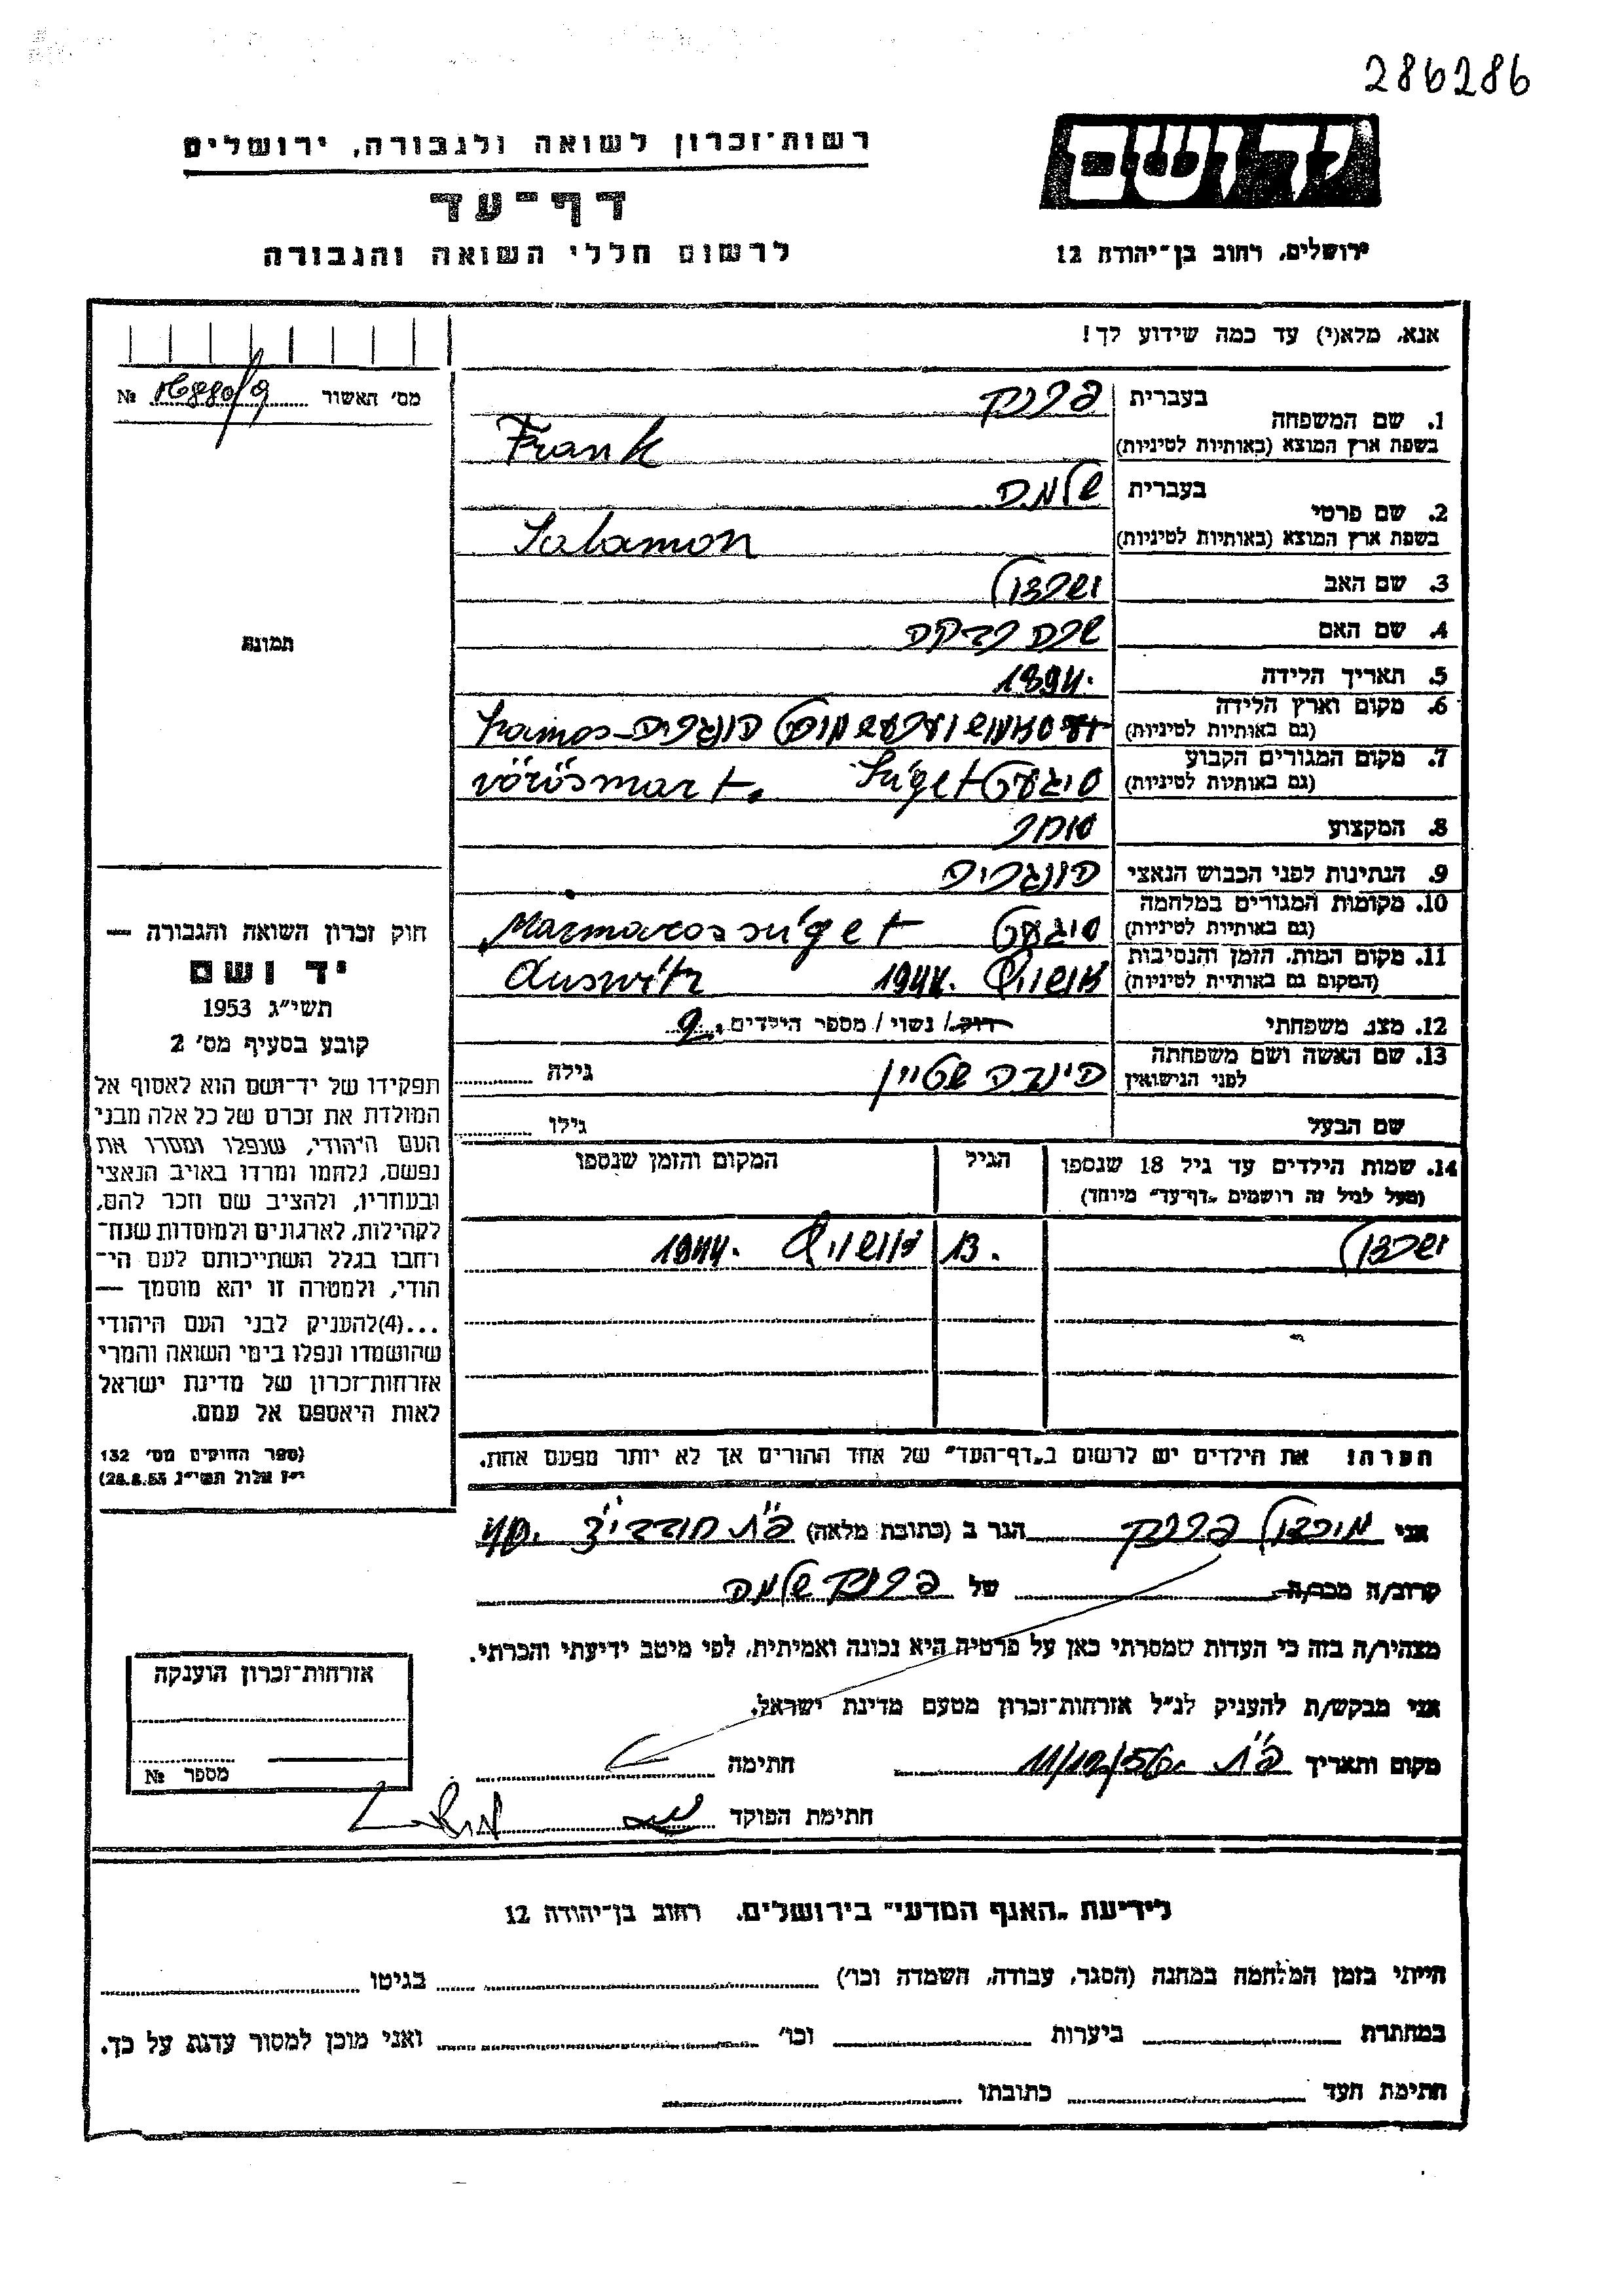 286286
יד ושם
ירושלים, רחוב בן־יהודה 12
רשות־זכרון לשואה ולגבורה, ירושלים
דף־עד
לרשום חללי השואה והגבורה
אנא, מלא(י) עד כמה שידוע לך!
מס' האשור №
1. שם המשפחה בעברית פרנק
בשפת ארץ המוצא (באותיות לטיניות) Frank
2. שם פרטי בעברית שלמה
בשפת ארץ המוצא (באותיות לטיניות) Salamon
3. שם האב
4. שם האם שרה רבקה
5. תאריך הלידה 1894.
6. מקום וארץ הלידה הונגריה
(גם באותיות לטיניות)
7. מקום המגורים הקבוע סיגעט Sziget vörösmart.
(גם באותיות לטיניות)
8. המקצוע סוחר
9. הנתינות לפני הכבוש הנאצי הונגריה
10. מקומות המגורים במלחמה סיגעט Marmarossziget
(גם באותיות לטיניות)
11. מקום המות, הזמן והנסיבות אושויץ 1944. Auswitz
(המקום גם באותיות לטיניות)
12. מצב משפחתי רווק / נשוי / מספר הילדים 9.
13. שם האשה ושם משפחתה לפני הנישואין הינדה שטיין גילה
שם הבעל גילו
14. שמות הילדים עד גיל 18 שנספו הגיל המקום והזמן שנספו
(מעל לגיל זה רושמים „דף־עד" מיוחד)
13. אושויץ 1944.
הערה: את הילדים יש לרשום ב„דף־העד" של אחד ההורים אך לא יותר מפעם אחת.
תמונה
חוק זכרון השואה והגבורה —
יד ושם
תשי"ג 1953
קובע בסעיף מס' 2
תפקידו של יד־ושם הוא לאסוף אל
המולדת את זכרם של כל אלה מבני
העם היהודי, שנפלו ומסרו את
נפשם, נלחמו ומרדו באויב הנאצי
ובעוזריו, ולהציב שם וזכר להם,
לקהילות, לארגונים ולמוסדות שנח־
רחבו בגלל השתייכותם לעם הי־
הודי, ולמטרה זו יהא מוסמך —
...(4)להעניק לבני העם היהודי
שהושמדו ונפלו בימי השואה והמרי
אזרחות־זכרון של מדינת ישראל
לאות היאספם אל עמם.
(ספר החוקים מס' 132
י"ז אלול תשי"ג 28.8.53)
אני פרנק הגר ב (כתובת מלאה) פ"ת
קרוב/ה מכר/ה של פרנק שלמה
מצהיר/ה בזה כי העדות שמסרתי כאן על פרטיה היא נכונה ואמיתית, לפי מיטב ידיעתי והכרתי.
אני מבקש/ת להעניק לנ"ל אזרחות־זכרון מטעם מדינת ישראל.
מקום ותאריך פ"ת חתימה
חתימת הפוקד
אזרחות־זכרון הוענקה
מספר №
לידיעת „האגף המדעי" בירושלים, רחוב בן־יהודה 12
הייתי בזמן המלחמה במחנה (הסגר, עבודה, השמדה וכו') בגיטו
במחתרת ביערות וכו' ואני מוכן למסור עדות על כך.
חתימת העד כתובתו